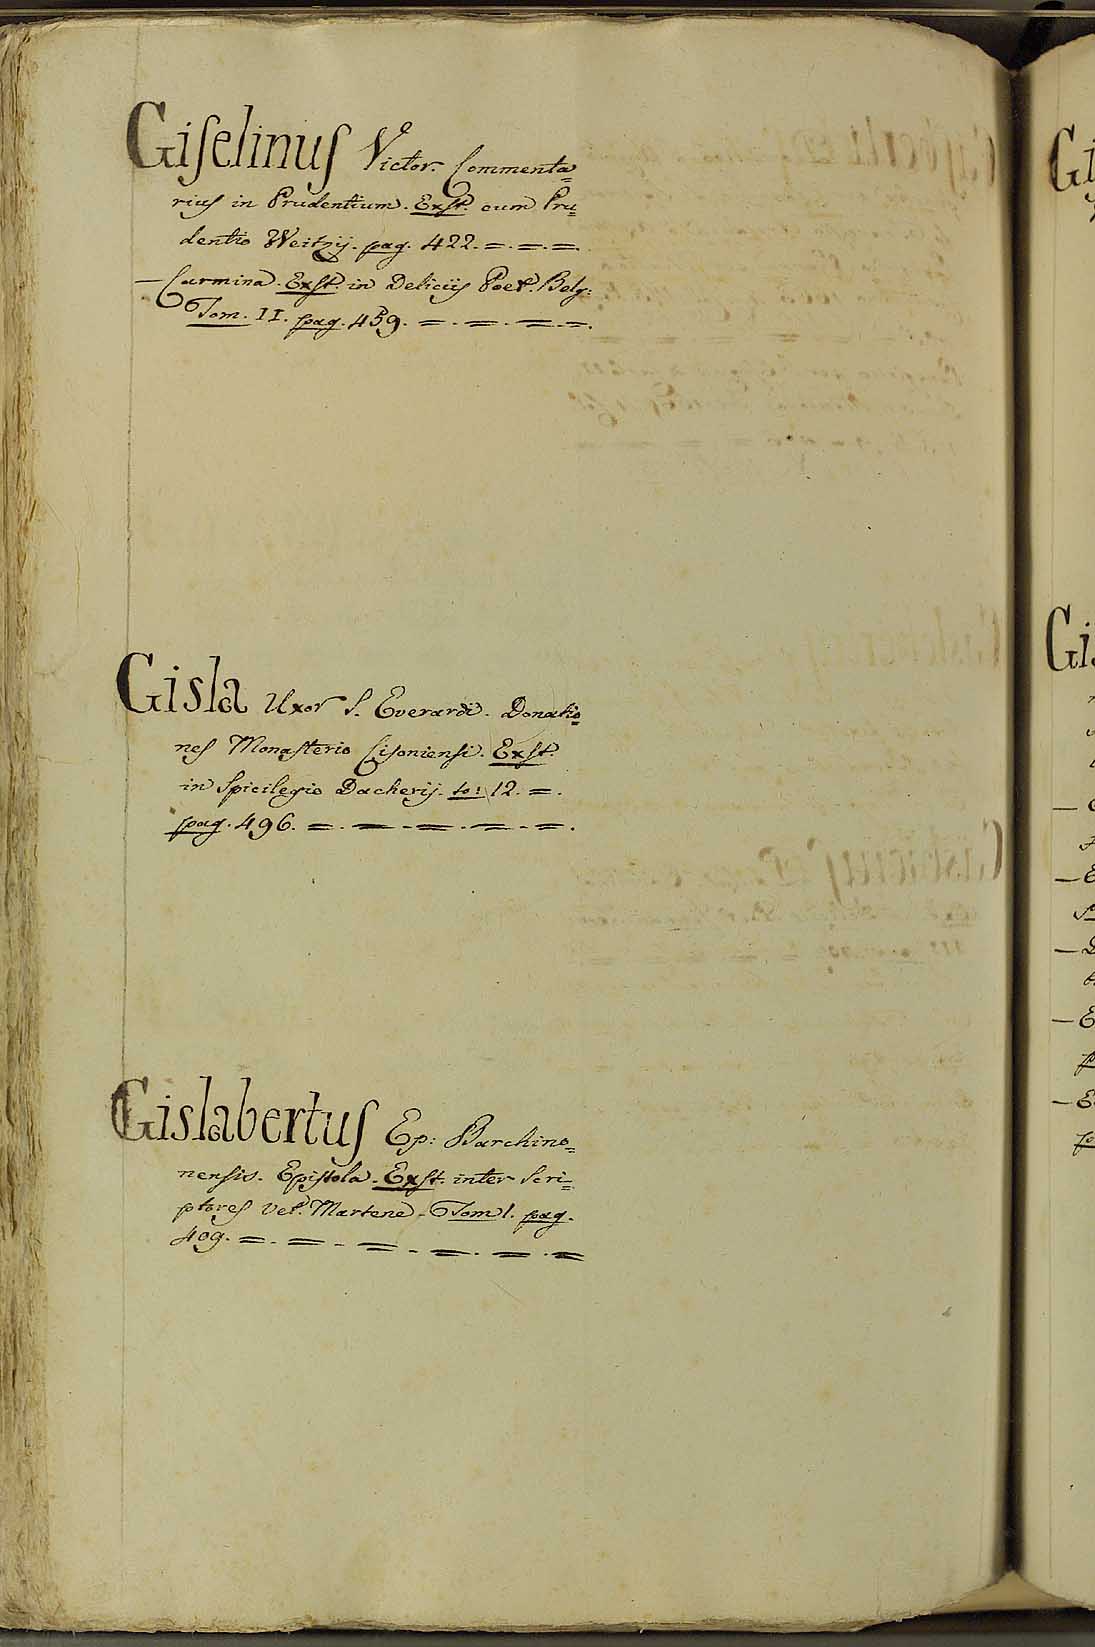 Giſelinuſ Victor. Commenta=
riuſ in Prudentium. Exſt. cum Pru=
dentio Weitzij. pag. 422. =. =. =.
— Carmina. Exſt. in Deliciiſ Poet. Belg:
Tom. II. pag. 459. =. =. =. =.
Gisla Uxor S. Everardi. Donatio=
neſ Monaſterio Ciſonienſi. Exſt.
in Spicilegio Dacherij. to: 12. =.
pag. 496. =. =. =. =. =.
Gislabertuſ Ep: Barchino=
nensis. Epiſtola. Exſt. inter Scri=
ptoreſ vet. Martene. Tom I. pag.
409. =. =. =. =. =. =